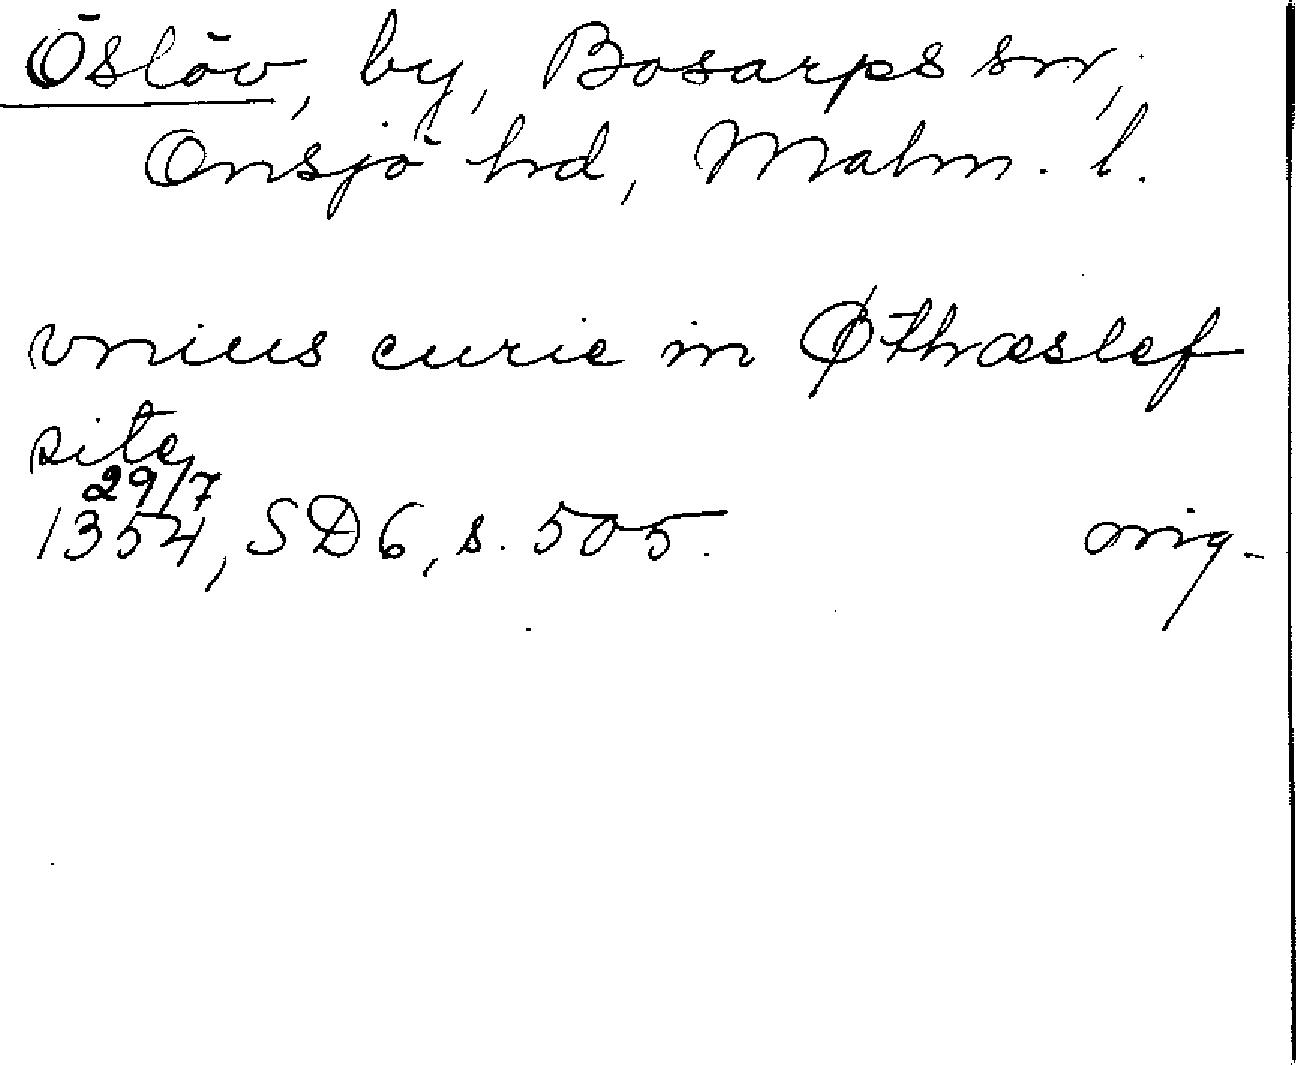 Öslöv, by, Bosarps sn,
Onsjö hd, Malm. l.
vnius curie in Øthæslef
site
29/7
1354, SD6, s. 505. orig.